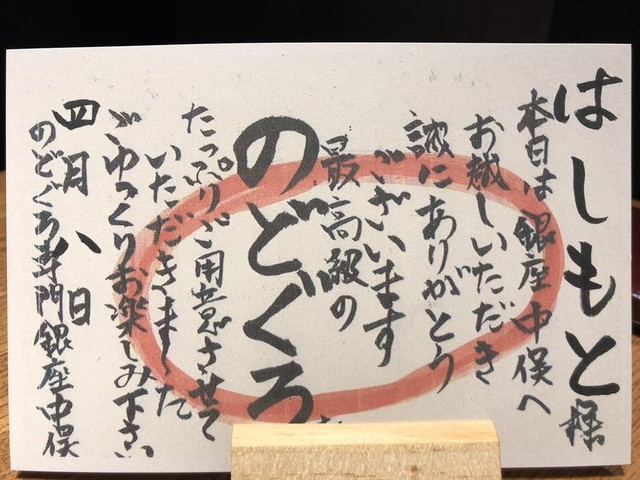 はしもと様
本日は銀座中俣へ
お越しいただき
誠にありがとう
ございます
最高級の
のどぐろ
たっぷりご用意させて
いただきました
ごゆっくりお楽しみ下さい
四月八日
のどぐろ専門銀座中俣